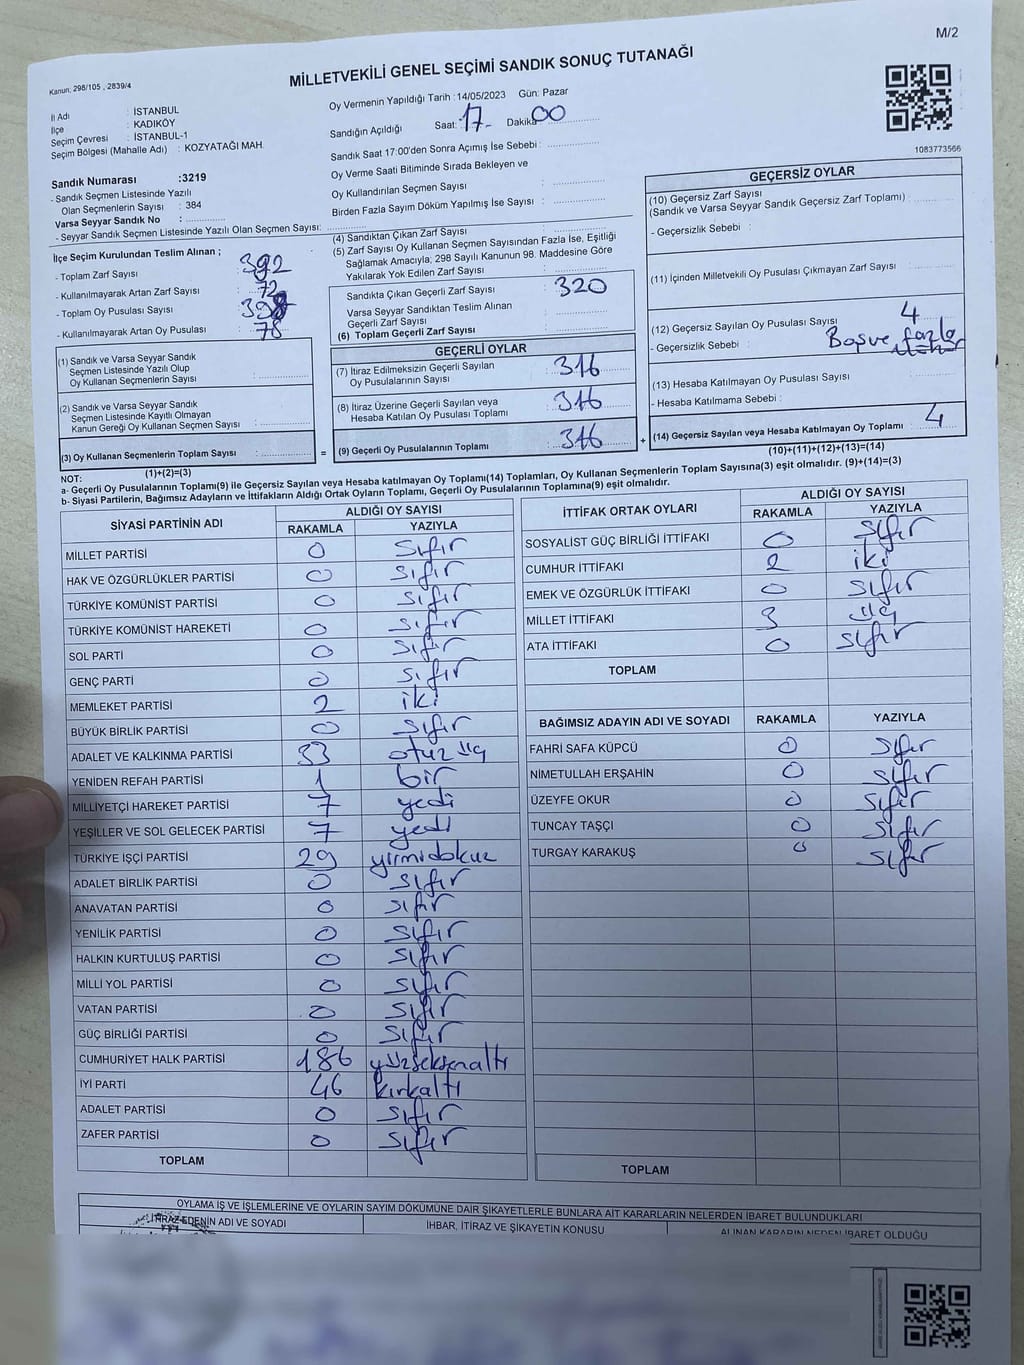 M/2
Kanun, 298/105 , 2839/4
MİLLETVEKİLİ GENEL SEÇİMİ SANDIK SONUÇ TUTANAĞI
İl Adı : İSTANBUL
İlçe : KADIKÖY
Seçim Çevresi : İSTANBUL-1
Seçim Bölgesi (Mahalle Adı) : KOZYATAĞI MAH.
Sandık Numarası :3219
- Sandık Seçmen Listesinde Yazılı
Olan Seçmenlerin Sayısı : 384
Varsa Seyyar Sandık No :
- Seyyar Sandık Seçmen Listesinde Yazılı Olan Seçmen Sayısı:
Oy Vermenin Yapıldığı Tarih :14/05/2023 Gün: Pazar
Sandığın Açıldığı Saat: 17 Dakika 00
Sandık Saat 17:00'den Sonra Açımış İse Sebebi :
Oy Verme Saati Bitiminde Sırada Bekleyen ve
Oy Kullandırılan Seçmen Sayısı :
Birden Fazla Sayım Döküm Yapılmış İse Sayısı :
1083773566
İlçe Seçim Kurulundan Teslim Alınan ;
- Toplam Zarf Sayısı : 392
- Kullanılmayarak Artan Zarf Sayısı : 72
- Toplam Oy Pusulası Sayısı :
- Kullanılmayarak Artan Oy Pusulası : 78
(1) Sandık ve Varsa Seyyar Sandık
Seçmen Listesinde Yazılı Olup
Oy Kullanan Seçmenlerin Sayısı :
(2) Sandık ve Varsa Seyyar Sandık
Seçmen Listesinde Kayıtlı Olmayan
Kanun Gereği Oy Kullanan Seçmen Sayısı :
(3) Oy Kullanan Seçmenlerin Toplam Sayısı :
(1)+(2)=(3)
(4) Sandıktan Çıkan Zarf Sayısı :
(5) Zarf Sayısı Oy Kullanan Seçmen Sayısından Fazla İse, Eşitliği
Sağlamak Amacıyla; 298 Sayılı Kanunun 98. Maddesine Göre
Yakılarak Yok Edilen Zarf Sayısı :
Sandıkta Çıkan Geçerli Zarf Sayısı : 320
Varsa Seyyar Sandıktan Teslim Alınan
Geçerli Zarf Sayısı :
(6) Toplam Geçerli Zarf Sayısı :
GEÇERLİ OYLAR
(7) İtiraz Edilmeksizin Geçerli Sayılan
Oy Pusulalarının Sayısı : 316
(8) İtiraz Üzerine Geçerli Sayılan veya
Hesaba Katılan Oy Pusulası Toplamı : 316
= (9) Geçerli Oy Pusulalarının Toplamı : 316 +
GEÇERSİZ OYLAR
(10) Geçersiz Zarf Sayısı
(Sandık ve Varsa Seyyar Sandık Geçersiz Zarf Toplamı) :
- Geçersizlik Sebebi :
(11) İçinden Milletvekili Oy Pusulası Çıkmayan Zarf Sayısı :
(12) Geçersiz Sayılan Oy Pusulası Sayısı : 4
- Geçersizlik Sebebi : Boş ve fazla
(13) Hesaba Katılmayan Oy Pusulası Sayısı :
- Hesaba Katılmama Sebebi :
(14) Geçersiz Sayılan veya Hesaba Katılmayan Oy Toplamı : 4
(10)+(11)+(12)+(13)=(14)
NOT:
a- Geçerli Oy Pusulalarının Toplamı(9) ile Geçersiz Sayılan veya Hesaba katılmayan Oy Toplamı(14) Toplamları, Oy Kullanan Seçmenlerin Toplam Sayısına(3) eşit olmalıdır. (9)+(14)=(3)
b- Siyasi Partilerin, Bağımsız Adayların ve İttifakların Aldığı Ortak Oyların Toplamı, Geçerli Oy Pusulalarının Toplamına(9) eşit olmalıdır.
SİYASİ PARTİNİN ADI ALDIĞI OY SAYISI
RAKAMLA YAZIYLA
MİLLET PARTİSİ 0 Sıfır
HAK VE ÖZGÜRLÜKLER PARTİSİ 0 sıfır
TÜRKİYE KOMÜNİST PARTİSİ 0 sıfır
TÜRKİYE KOMÜNİST HAREKETİ 0 sıfır
SOL PARTİ 0 sıfır
GENÇ PARTİ 0 sıfır
MEMLEKET PARTİSİ 2 iki
BÜYÜK BİRLİK PARTİSİ 0 sıfır
ADALET VE KALKINMA PARTİSİ 33 otuz üç
YENİDEN REFAH PARTİSİ 1 bir
MİLLİYETÇİ HAREKET PARTİSİ 7 yedi
YEŞİLLER VE SOL GELECEK PARTİSİ 7 yedi
TÜRKİYE İŞÇİ PARTİSİ 29 yirmidokuz
ADALET BİRLİK PARTİSİ 0 sıfır
ANAVATAN PARTİSİ 0 sıfır
YENİLİK PARTİSİ 0 sıfır
HALKIN KURTULUŞ PARTİSİ 0 sıfır
MİLLİ YOL PARTİSİ 0 sıfır
VATAN PARTİSİ 0 sıfır
GÜÇ BİRLİĞİ PARTİSİ 0 sıfır
CUMHURİYET HALK PARTİSİ 186 yüzseksenaltı
İYİ PARTİ 46 kırkaltı
ADALET PARTİSİ 0 sıfır
ZAFER PARTİSİ 0 sıfır
TOPLAM
İTTİFAK ORTAK OYLARI ALDIĞI OY SAYISI
RAKAMLA YAZIYLA
SOSYALİST GÜÇ BİRLİĞİ İTTİFAKI 0 sıfır
CUMHUR İTTİFAKI 2 iki
EMEK VE ÖZGÜRLÜK İTTİFAKI 0 sıfır
MİLLET İTTİFAKI 3 üç
ATA İTTİFAKI 0 sıfır
TOPLAM
BAĞIMSIZ ADAYIN ADI VE SOYADI RAKAMLA YAZIYLA
FAHRİ SAFA KÜPCÜ 0 sıfır
NİMETULLAH ERŞAHİN 0 sıfır
ÜZEYFE OKUR 0 sıfır
TUNCAY TAŞÇI 0 sıfır
TURGAY KARAKUŞ 0 sıfır
TOPLAM
OYLAMA İŞ VE İŞLEMLERİNE VE OYLARIN SAYIM DÖKÜMÜNE DAİR ŞİKAYETLERLE BUNLARA AİT KARARLARIN NELERDEN İBARET BULUNDUKLARI
İTİRAZ EDENİN ADI VE SOYADI İHBAR, İTİRAZ VE ŞİKAYETİN KONUSU ALINAN KARARIN NEDEN İBARET OLDUĞU